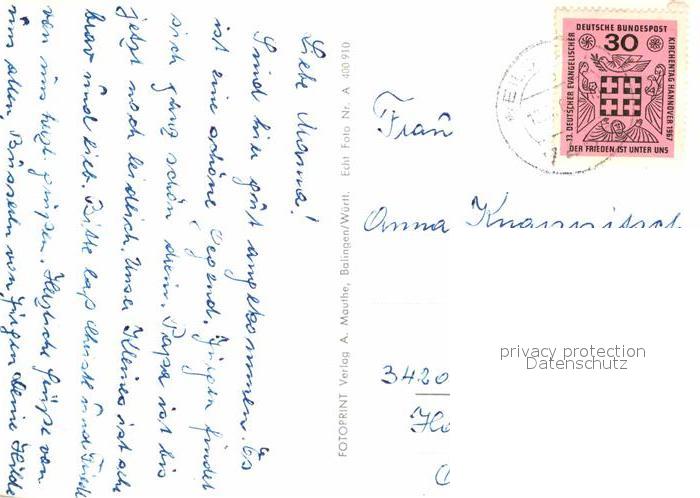 Liebe Mama!
Sind hier gut angekommen. Es
ist eine schöne Gegend. Jürgen findet
sich ganz schön drein. Papa ist bis
jetzt noch leidlich. Unser Kleines ist sehr
brav und lieb. Bitte laß und
von uns lieb grüßen. Herzliche Grüße von
uns allen, Bussech von Jürgen Deine Hilde
FOTOPRINT Verlag A. Mauthe, Balingen/Württ. Echt Foto Nr. A 400 910
DEUTSCHE BUNDESPOST
30
13. DEUTSCHER EVANGELISCHER
KIRCHENTAG HANNOVER 1967
DER FRIEDEN IST UNTER UNS
Frau
Anna
3420
privacy protection
Datenschutz